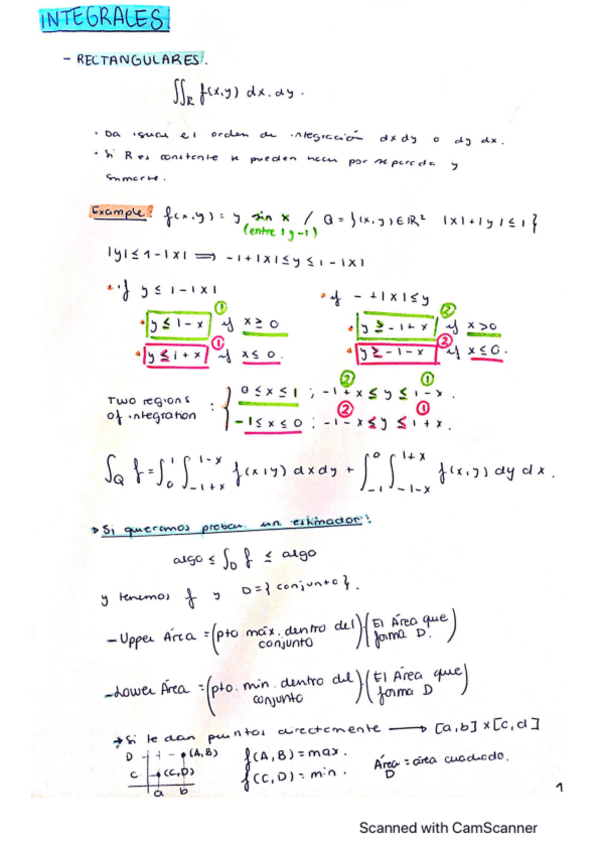 INTEGRALES
- RECTANGULARES.
∬_R f(x,y) dx.dy.
• Da igual el orden de integración dxdy o dy dx.
• Si R es constante se pueden hacer por separado y
sumarse.
Example: f(x,y) = y sin x / Q = {(x,y) ∈ ℝ² |x|+|y| ≤ 1}
(entre 1 y -1)
|y| ≤ 1-|x| ⟹ -1+|x| ≤ y ≤ 1-|x|
• if y ≤ 1-|x|
① y ≤ 1-x if x ≥ 0
① y ≤ 1+x if x ≤ 0.
• if -+|x| ≤ y
② y ≥ -1+x if x>0
② y ≥ -1-x if x ≤ 0.
Two regions of integration :
0 ≤ x ≤ 1 ; -1+x ≤ y ≤ 1-x. ② ①
-1 ≤ x ≤ 0 ; -1-x ≤ y ≤ 1+x. ② ①
∫_Q f = ∫_0^1 ∫_{-1+x}^{1-x} f(x,y) dxdy + ∫_{-1}^0 ∫_{-1-x}^{1+x} f(x,y) dy dx.
→ Si queremos probar un estimador:
algo ≤ ∫_D f ≤ algo
y tenemos f y D = {conjunto}.
- Upper Área = (pto máx. dentro del conjunto)(El Área que forma D.)
- Lower Área = (pto. min. dentro del conjunto)(El Área que forma D)
→ Si te dan puntos directamente → [a,b]x[c,d]
D (A,B)
C (C,D)
a b
f(A,B) = max.
f(C,D) = min.
Área D = área cuadrado.
1
Scanned with CamScanner